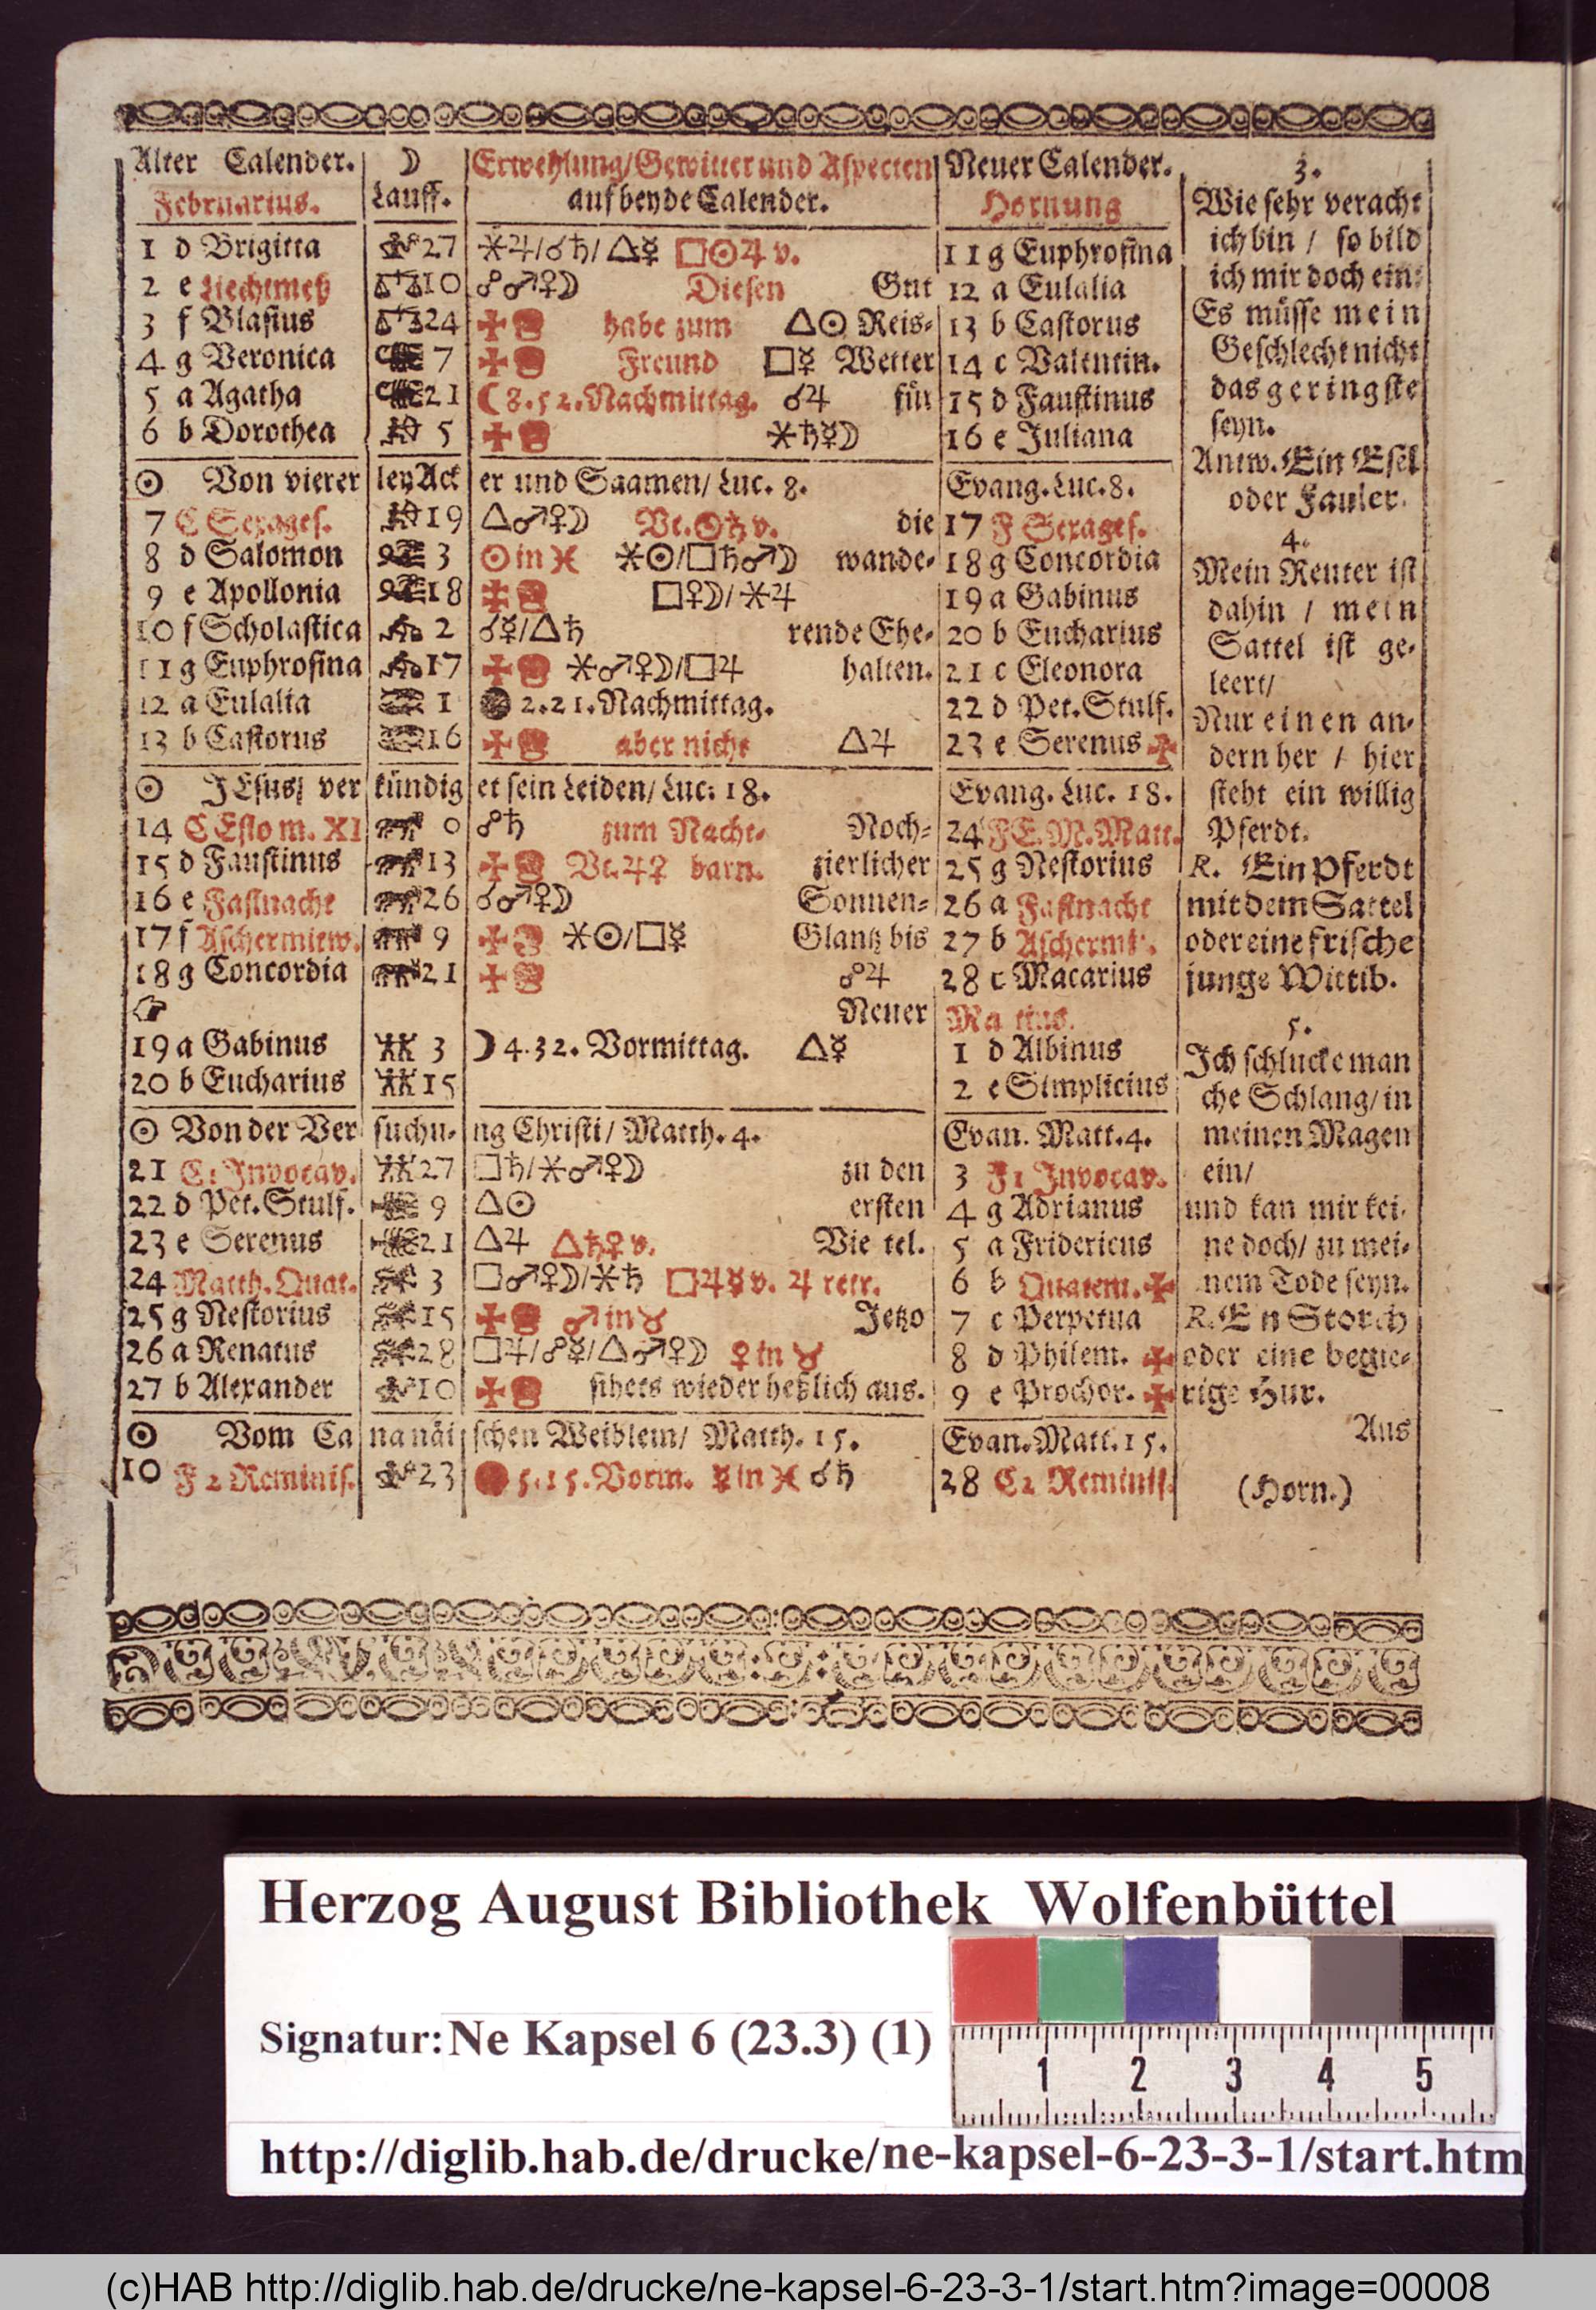 Alter Calender. | ☽ | Erwehlung/Gewitter und Aspecten | Neuer Calender.
Februarius. | Lauff. | auf beyde Calender. | Hornung
1 d Brigitta | 27 | ⚹♃/☌♄/△☿ □☉♃ v. | 11 g Euphrosina
2 e Liechtmeß | 10 | ☍♂♀☽ Diesen Gut | 12 a Eulalia
3 f Blasius | 24 | ✠ habe zum △☉ Reis- | 13 b Castorus
4 g Veronica | 7 | ✠ Freund □☿ Wetter | 14 c Valentin.
5 a Agatha | 21 | ☾ 8.52. Nachmittag. ☌♃ für | 15 d Faustinus
6 b Dorothea | 5 | ✠ ⚹♄☿☽ | 16 e Juliana
☉ Von vierer | ley Ack | er und Saamen/ Luc. 8. | Evang. Luc. 8.
7 C Sexages. | 19 | △♂♀☽ Vc.☉♄ v. die | 17 F Sexages.
8 d Salomon | 3 | ☉ in ♓ ⚹☉/□♄♂☽ wande- | 18 g Concordia
9 e Apollonia | 18 | ✠ □♀☽/⚹♃ | 19 a Gabinus
10 f Scholastica | 2 | ☌☿/△♄ rende Ehe- | 20 b Eucharius
11 g Euphrosina | 17 | ✠ ⚹♂♀☽/□♃ halten. | 21 c Eleonora
12 a Eulalia | 1 | ● 2.21. Nachmittag. | 22 d Pet. Stulf.
13 b Castorus | 16 | ✠ aber nicht △♃ | 23 e Serenus ✠
☉ JEsus/ ver | kündig | et sein Leiden/ Luc: 18. | Evang. Luc. 18.
14 C Esto m. XI | 0 | ☍♄ zum Nacht- Noch- | 24 F E. M. Matt.
15 d Faustinus | 13 | ✠ Vc.♃♀ barn. zierlicher | 25 g Nestorius
16 e Fastnacht | 26 | ☌♂♀☽ Sonnen- | 26 a Fastnacht
17 f Aschermitw. | 9 | ✠ ⚹☉/□☿ Glantz bis | 27 b Aschermit.
18 g Concordia | 21 | ✠ ☍♃ | 28 c Macarius
☞ Neuer | Martius.
19 a Gabinus | 3 | ☽ 4.32. Vormittag. △☿ | 1 d Albinus
20 b Eucharius | 15 | 2 e Simplicius
☉ Von der Ver | suchu- | ng Christi/ Matth. 4. | Evan. Matt. 4.
21 C1 Invocav. | 27 | □♄/⚹♂♀☽ zu den | 3 F1 Invocav.
22 d Pet. Stulf. | 9 | △☉ ersten | 4 g Adrianus
23 e Serenus | 21 | △♃ △♄♀ v. Vie tel. | 5 a Fridericus
24 Matth. Quat. | 3 | □♂♀☽/⚹♄ □♃☿ v. ♃ retr. | 6 b Quatem. ✠
25 g Nestorius | 15 | ✠ ♂ in ♉ Jetzo | 7 c Perpetua
26 a Renatus | 28 | □♃/☍☿/△♂♀☽ ♀ in ♉ | 8 d Philem. ✠
27 b Alexander | 10 | ✠ sihets wieder heßlich aus. | 9 e Prochor. ✠
☉ Vom Ca | nanäi | schen Weiblein/ Matth. 15. | Evan. Matt. 15.
10 F 2 Reminis. | 23 | 5.15. Vorm. ☿ in ♓ ☌♄ | 28 C2 Reminis.
3.
Wie sehr veracht
ich bin / so bild
ich mir doch ein:
Es müsse mein
Geschlecht nicht
das geringste
seyn.
Antw. Ein Esel
oder Fauler.
4.
Mein Reuter ist
dahin / mein
Sattel ist ge-
leert/
Nur einen an-
dern her / hier
steht ein willig
Pferdt.
R. Ein Pferdt
mit dem Sattel
oder eine frische
junge Wittib.
5.
Ich schlucke man
che Schlang/ in
meinen Magen
ein/
und kan mir kei-
ne doch/ zu mei-
nem Tode seyn.
R. E n Storch
oder eine begie-
rige Hur.
Aus
(Horn.)
Herzog August Bibliothek Wolfenbüttel
Signatur: Ne Kapsel 6 (23.3) (1)
1 2 3 4 5
http://diglib.hab.de/drucke/ne-kapsel-6-23-3-1/start.htm
(c)HAB http://diglib.hab.de/drucke/ne-kapsel-6-23-3-1/start.htm?image=00008